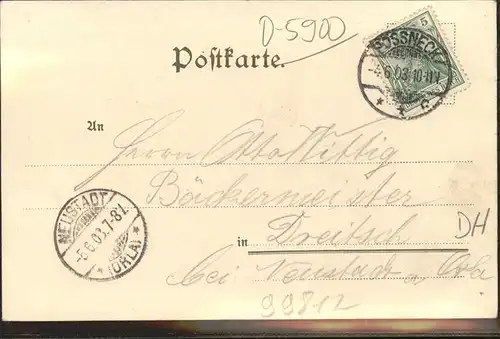 D-5900
Postkarte.
5
PÖSSNECK
-4.6.03.10-11V.
* * c
An
Herrn Otto Wittig
Bäckermeister
DH
in Dreitsch
bei Neustadt a Orla
NEUSTADT
-5.6.03.7-8V.
* (ORLA) *
99812